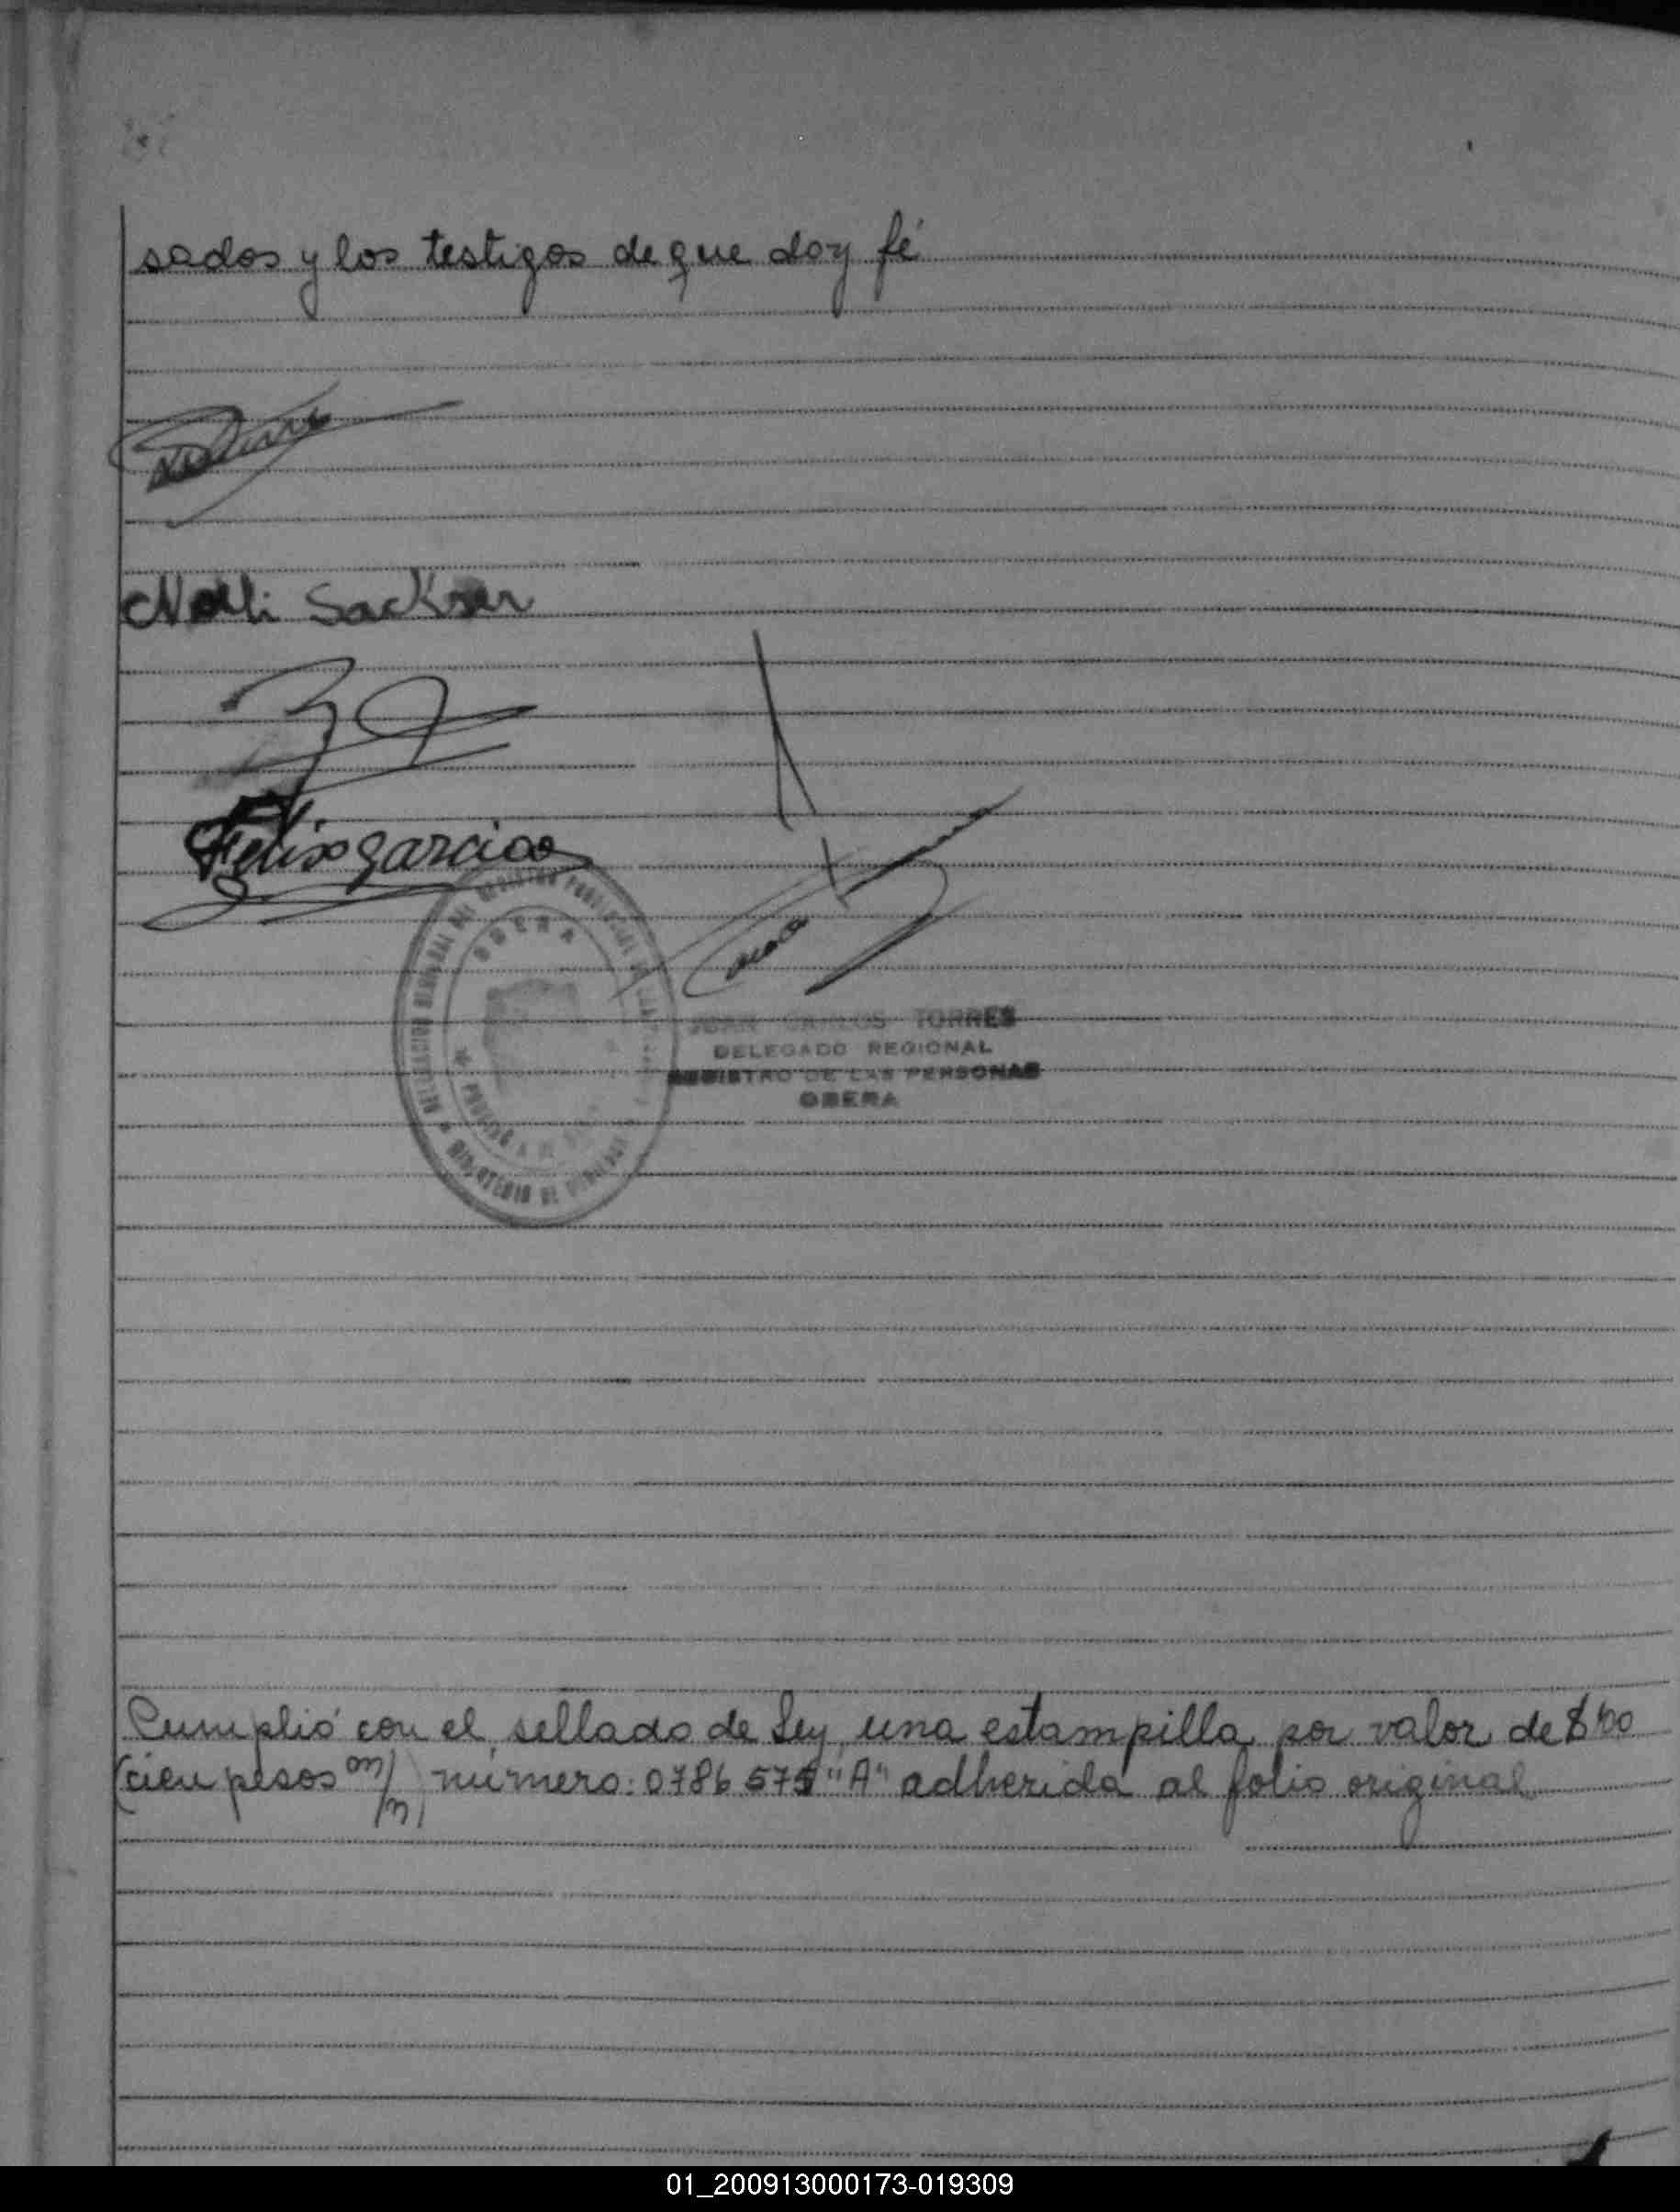 sados y los testigos de que doy fé
Nelli Sackser
Felix garcia
OBERA
JUAN CARLOS TORRES
DELEGADO REGIONAL
REGISTRO DE LAS PERSONAS
OBERA
Cumplió con el sellado de Ley, una estampilla por valor de $100
(cien pesos m/n) número: 0786575 "A" adherida al folio original
01_200913000173-019309